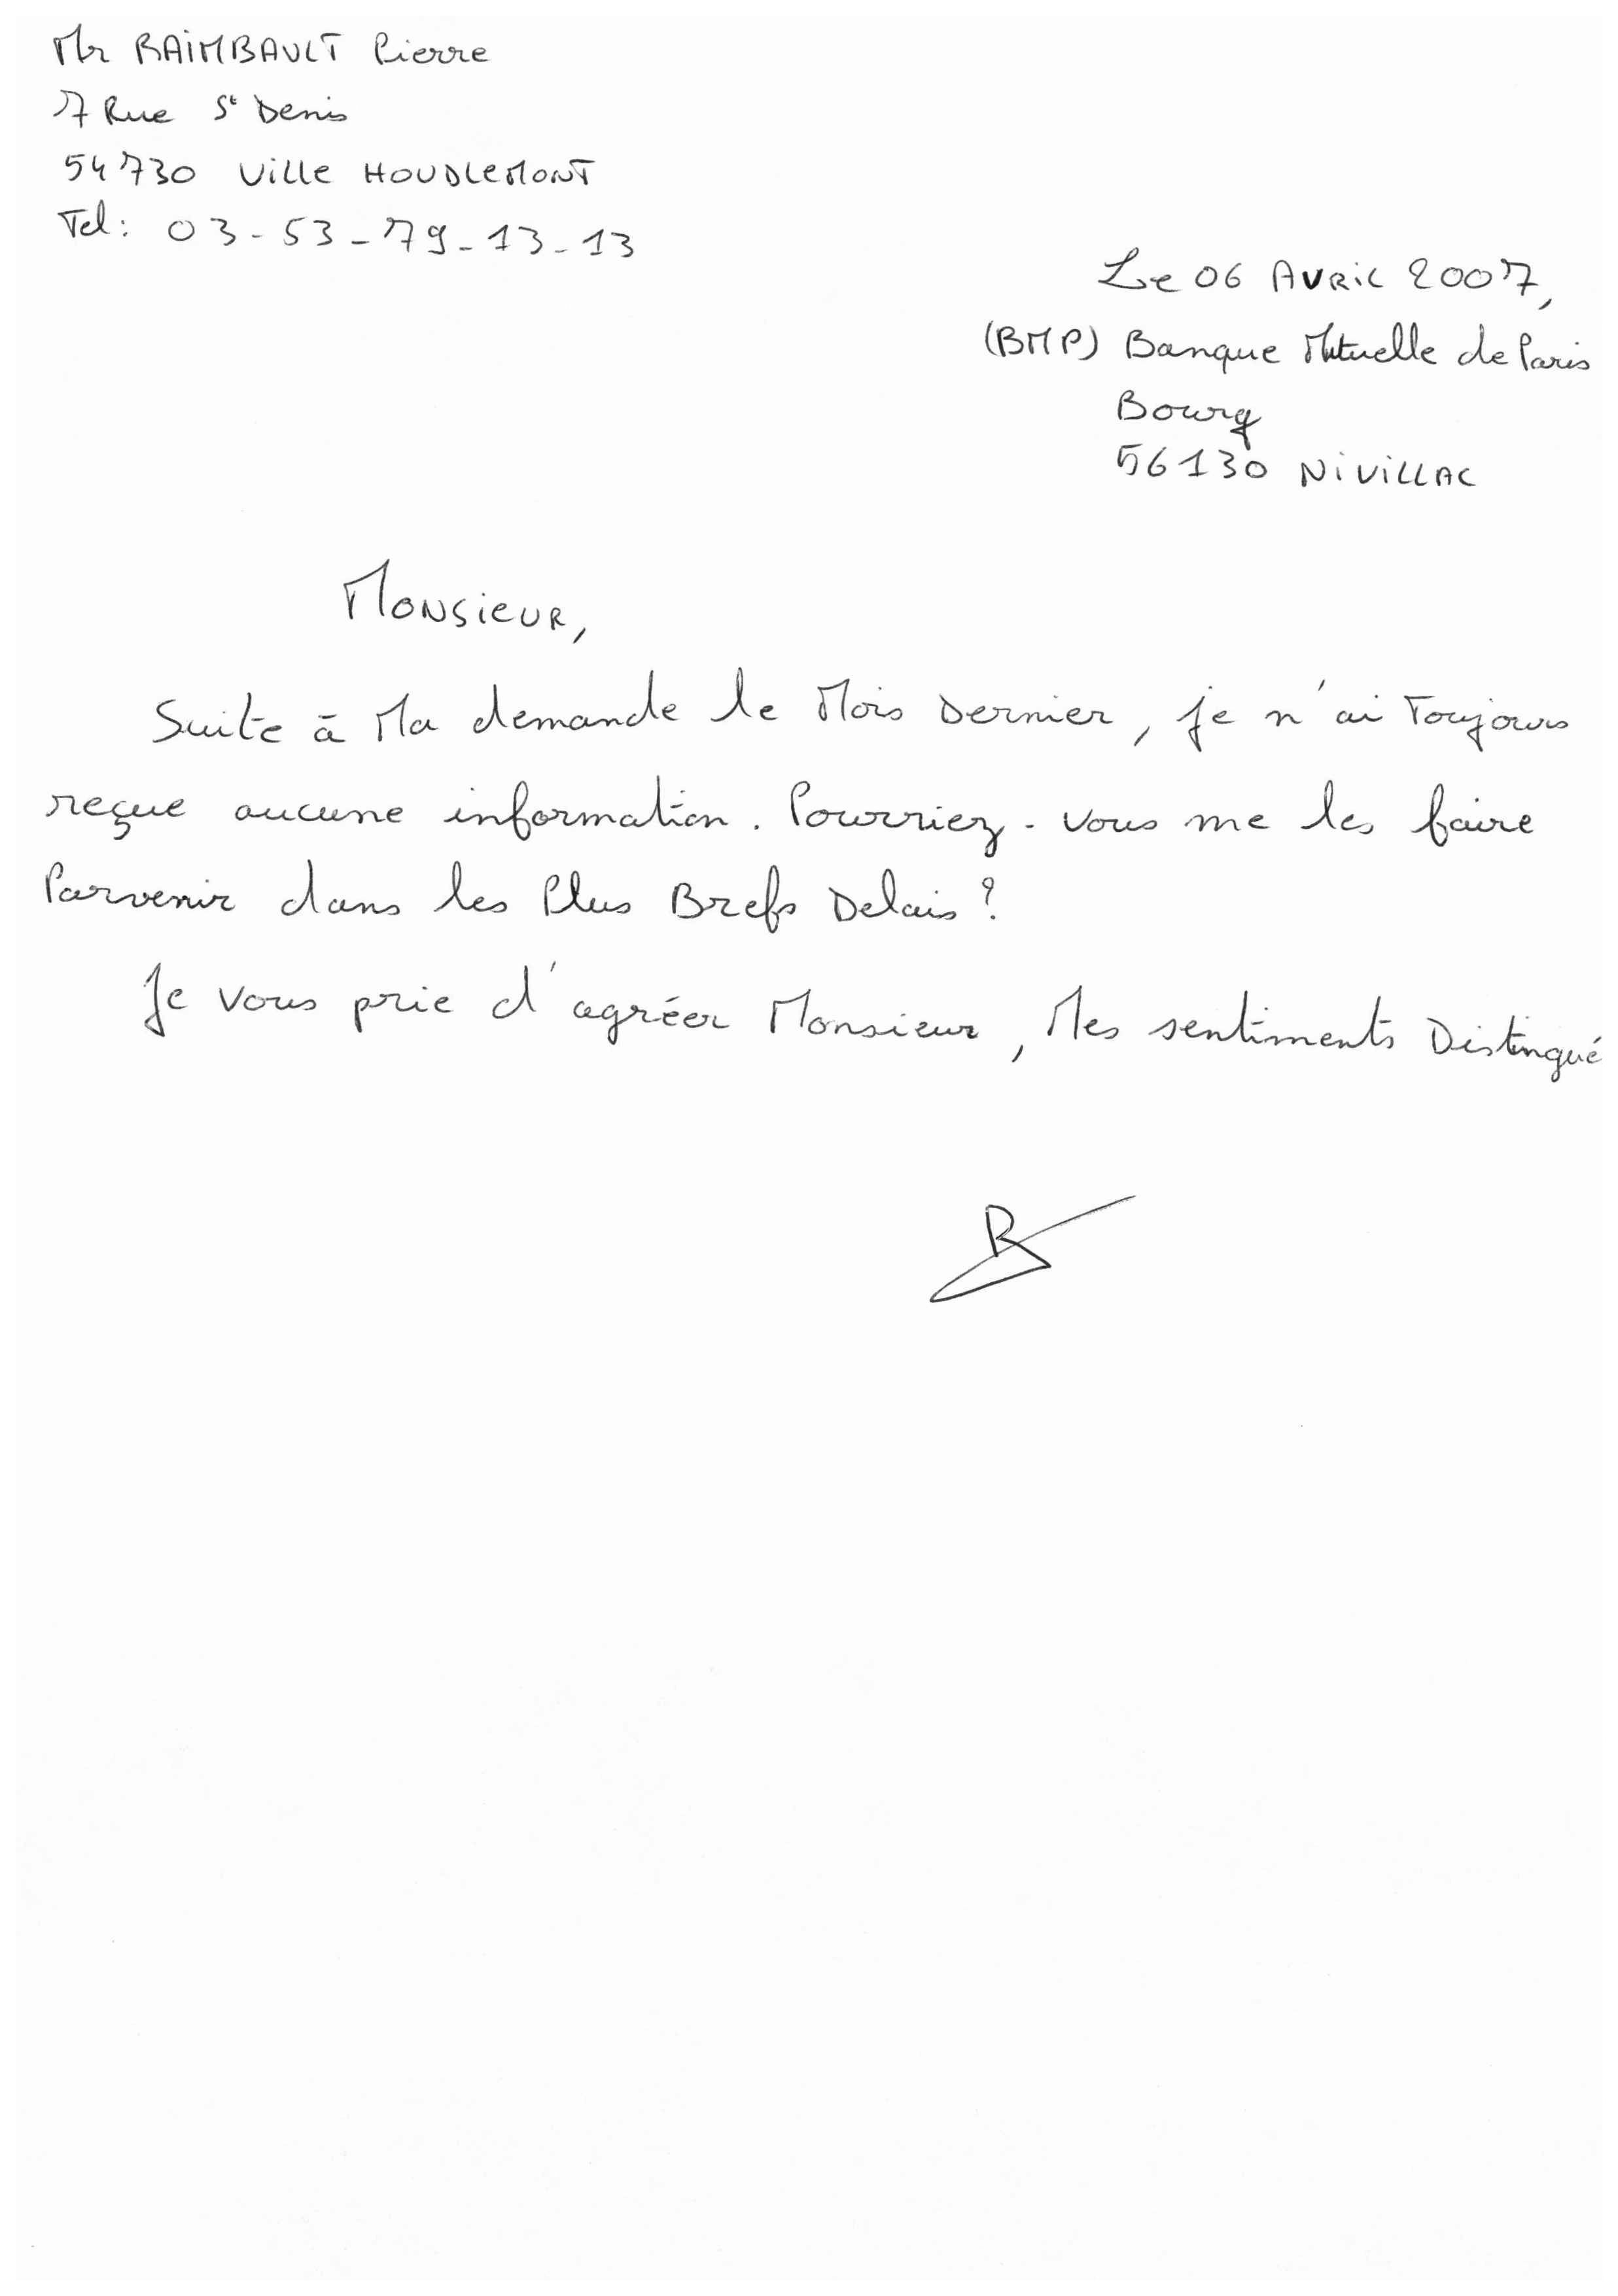 Mr RAIMBAULT Pierre
7 Rue St Denis
54730 Ville HOUDLEMONT
Tel: 03-53-79-13-13
Le 06 Avril 2007,
(BMP) Banque Mutuelle de Paris
Bourg
56130 NIVILLAC
Monsieur,
Suite à Ma demande le Mois Dernier, je n'ai Toujours
reçue aucune information. Pourriez-vous me les faire
Parvenir dans les Plus Brefs Delais?
Je vous prie d'agréer Monsieur, Mes sentiments Distingué